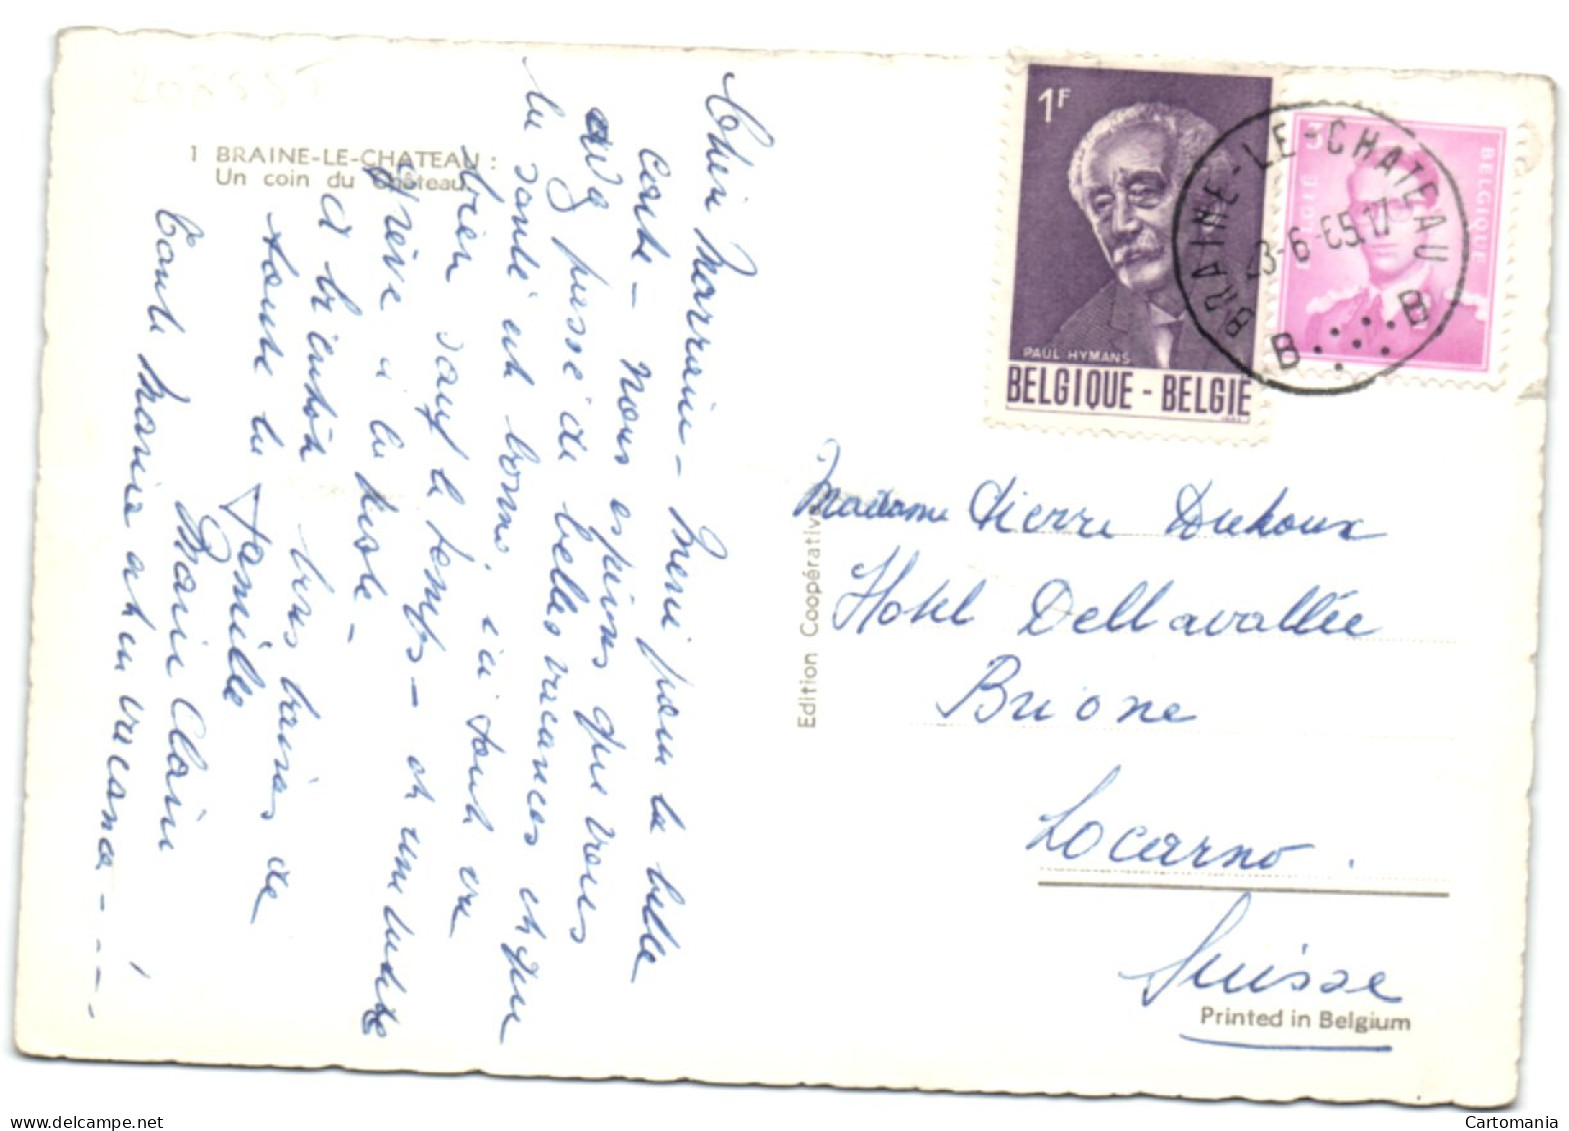 1 BRAINE-LE-CHATEAU :
Un coin du Château.
Chère Marraine - Merci pour la belle
carte - Nous espérons que vous
avez passé de belles vacances et que
la santé est bonne, ici tout va
bien sauf le temps - et une
grève à la poste -
et bientôt bons baisers de
toute la famille
Marie Claire
Tante Maria est en vacances ----
1F
PAUL HYMANS
BELGIQUE - BELGIË
3F
BELGIË
BELGIQUE
BRAINE-LE-CHATEAU
23-6-65.17
B B
Edition Coopérative
Madame Pierre Duhoux
Hotel Dellavallée
Brione
Locarno.
Suisse
Printed in Belgium
delcampe.net
Cartomania